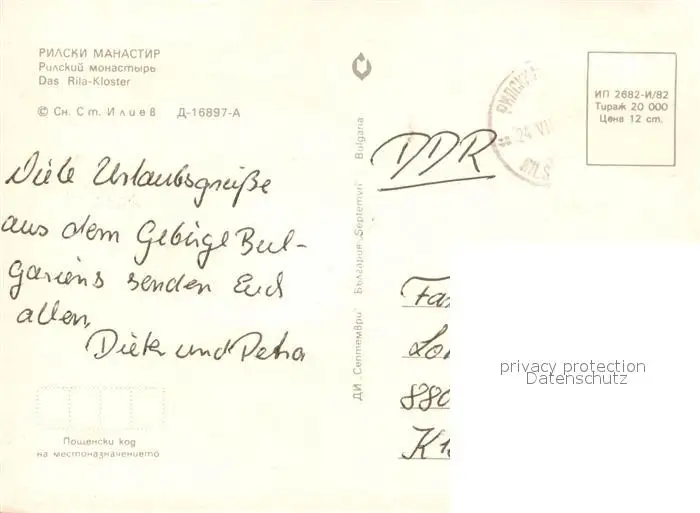 РИЛСКИ МАНАСТИР
Рилский монастырь
Das Rila-Kloster
© Сн. Ст. Илиев Д-16897-А
Viele Urlaubsgrüße
aus dem Gebirge Bul-
gariens senden Euch
allen,
Dieter und Petra
Пощенски код
на местоназначението
ДИ „Септември" България „Septemvri" Bulgaria
ИП 2682-И/82
Тираж 20 000
Цена 12 ст.
24 VII
DDR
Fa
Lo
880
K
privacy protection
Datenschutz